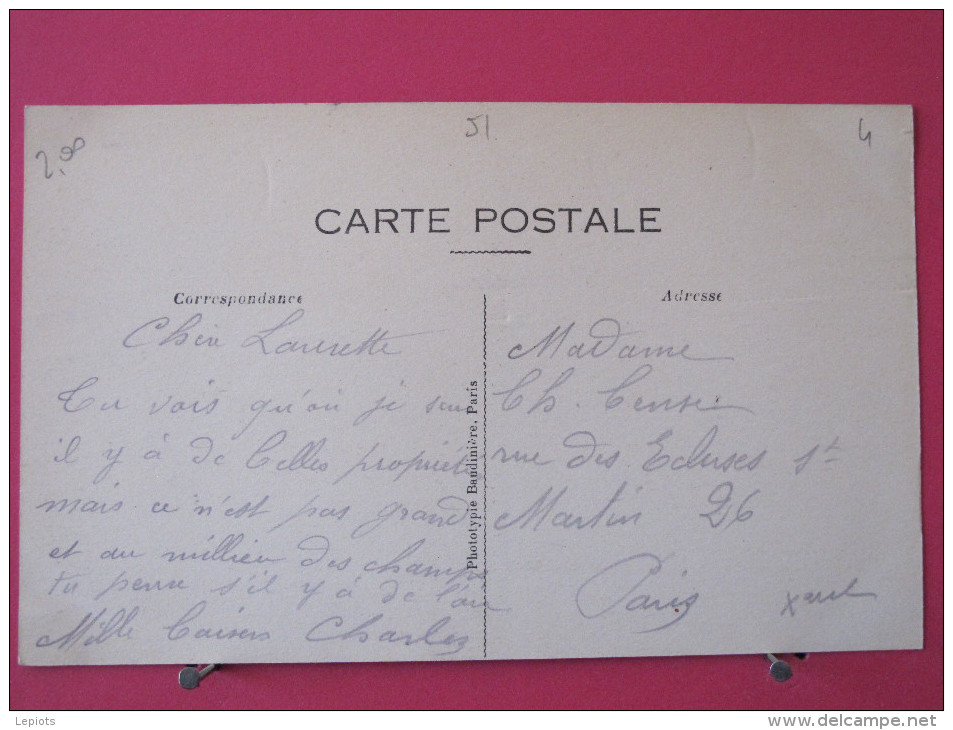 2,00
51
4
CARTE POSTALE
Correspondance
Adresse
Chère Laurette
Tu vois qu'où je suis
il y à de belles propriétés
mais ce n'est pas grand
et au millieu des champs
tu pense s'il y à de l'air
Mille baisers Charles
Phototypie Baudinière, Paris
Madame
Ch.
rue des Ecluses St
Martin 26
Paris
Lepiots
www.delcampe.net